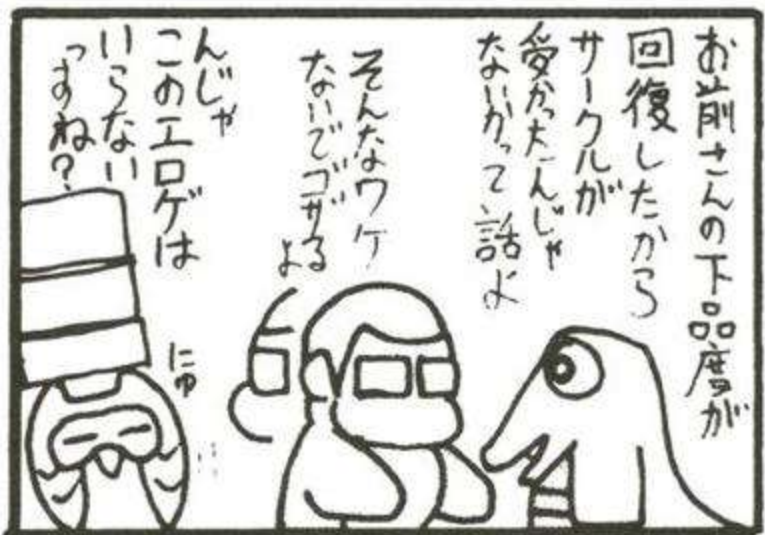 お前さんの下品度が
回復したから
サークルが
受かったんじゃ
ないかって話よ
そんなワケ
ないでゴザる
よ
んじゃ
このエロゲは
いらない
っすね?
にゅ